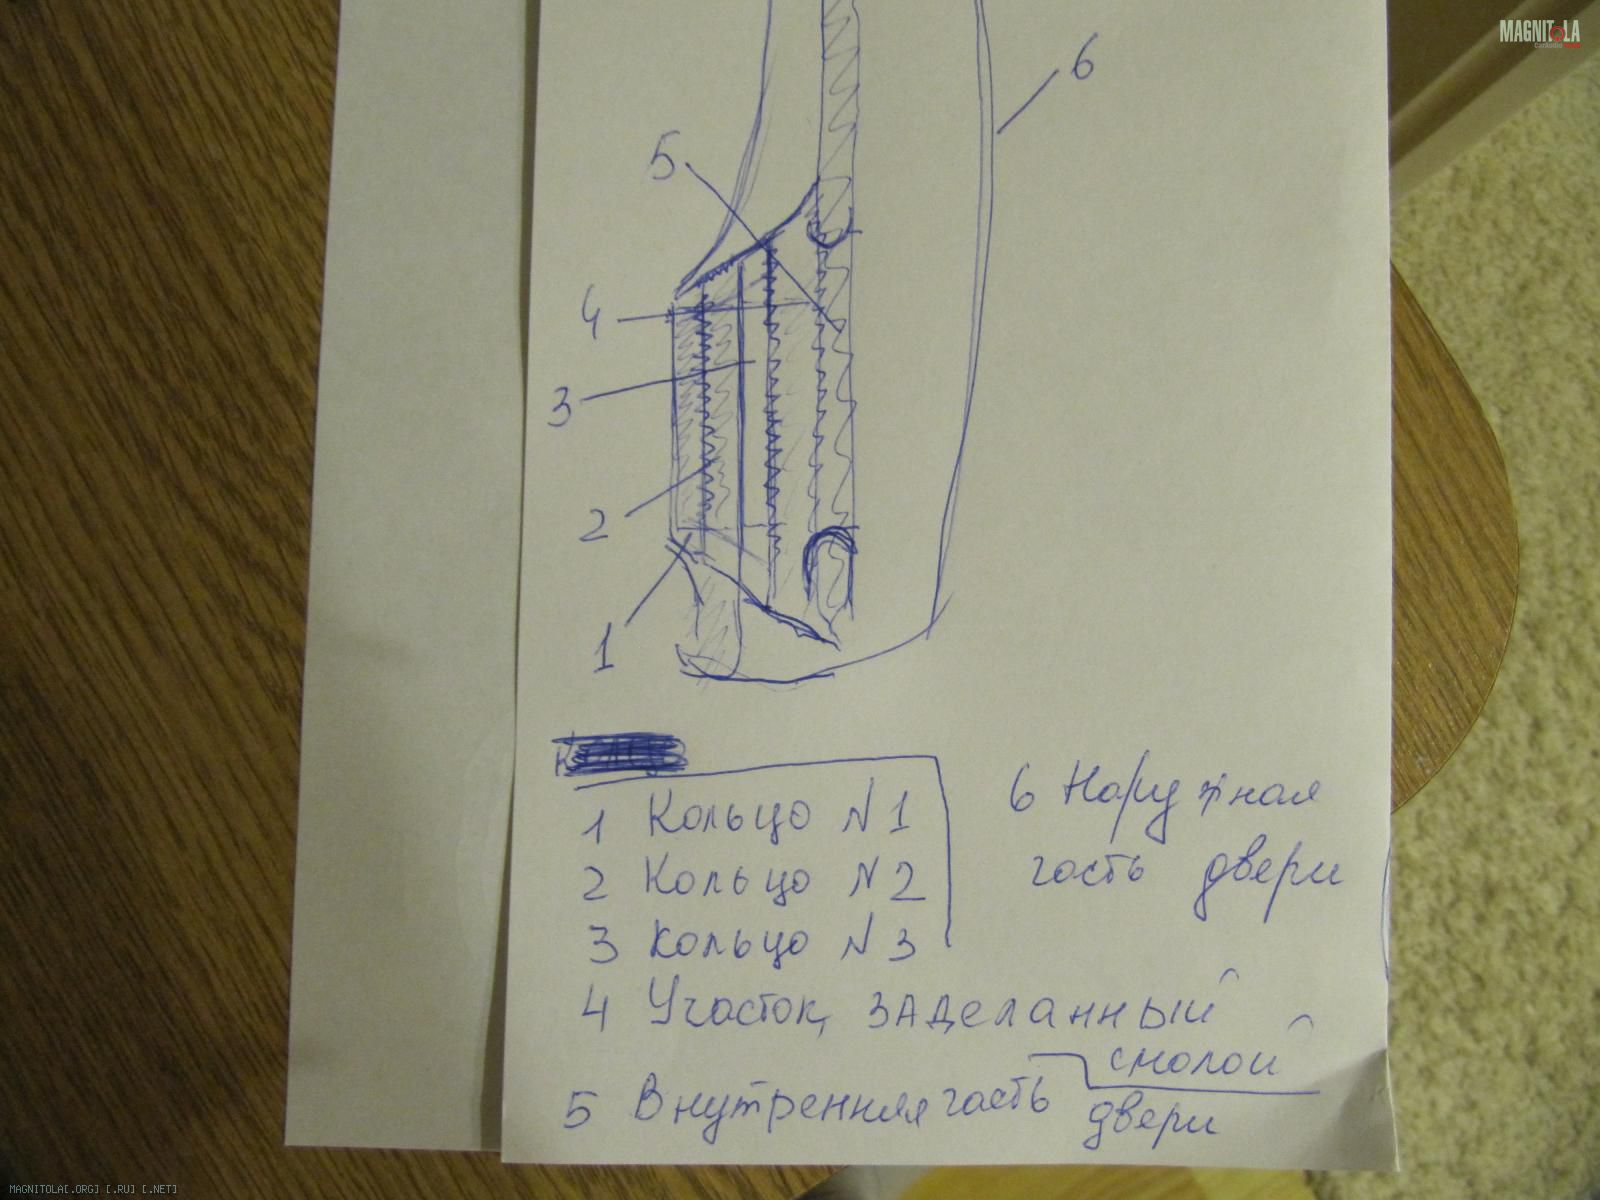 MAGNITOLA
CarAudio
6
5
4
3
2
1
1 Кольцо N1
2 Кольцо N2
3 Кольцо N3
4 Участок, заделанный
смолой
5 Внутренняя часть
двери
6 Наружная
часть двери
MAGNITOLA[.ORG] [.RU] [.NET]